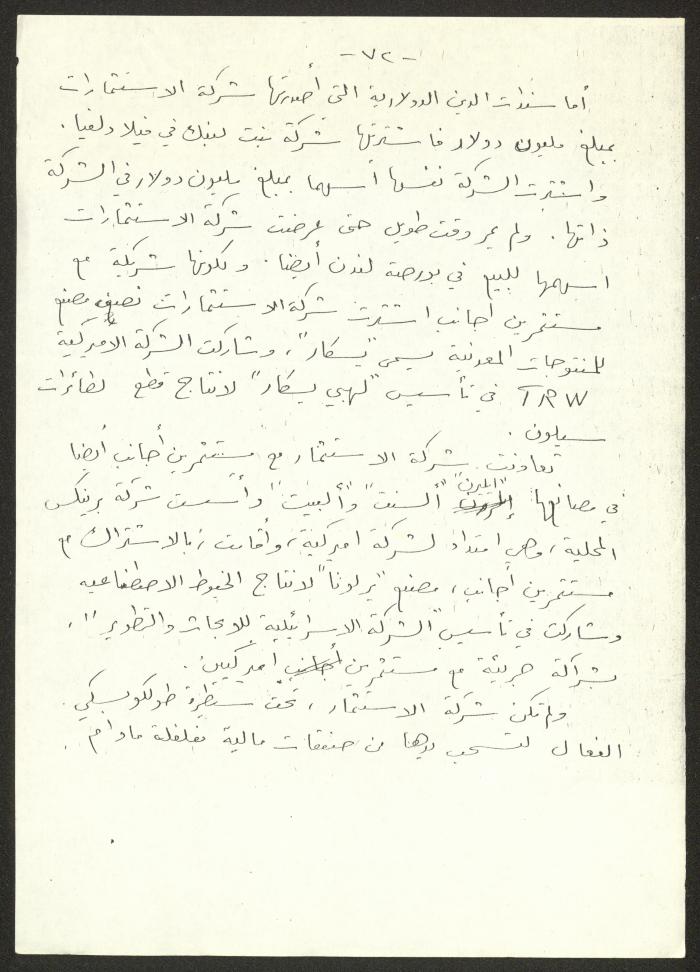 -٧٢-
أما سندات الدين الدولارية التي أصدرتها شركة الاستثمارات
بمبلغ مليون دولار فاشترتها شركة بنت لبنك في فيلادلفيا.
واشترت الشركة نفسها أسهما بمبلغ مليون دولار في الشركة
ذاتها. ولم يمر وقت طويل حتى عرضت شركة الاستثمارات
اسهمها للبيع في بورصة لندن أيضا. وبكونها شريكة مع
مستثمرين اجانب اشترت شركة الاستثمارات نصف مصنع
للمنتوجات المعدنية يسمى "يسكار"، وشاركت الشركة الأميركية
TRW في تأسيس "لهبي يسكار" لانتاج قطع لطائرات
سيلون.
تعاونت شركة الاستثمار مع مستثمرين أجانب أيضا
في مصانعها "المرن" "ألسنت" و"ألبيت" وأسست شركة برينكس
المحلية، وهي امتداد لشركة اميركية، وأقامت، بالاشتراك مع
مستثمرين أجانب، مصنع "برلونا" لانتاج الخيوط الاصطناعيه
وشاركت في تأسيس "الشركة الاسرائيلية للابحاث والتطوير"،
بشراكة جزئية مع مستثمرين أجانب اميركيين.
ولم تكن شركة الاستثمار، تحت سيطرة طولكوبسكي
الفعال لتسحب يديها من صفقات مالية مغلفلة مادام